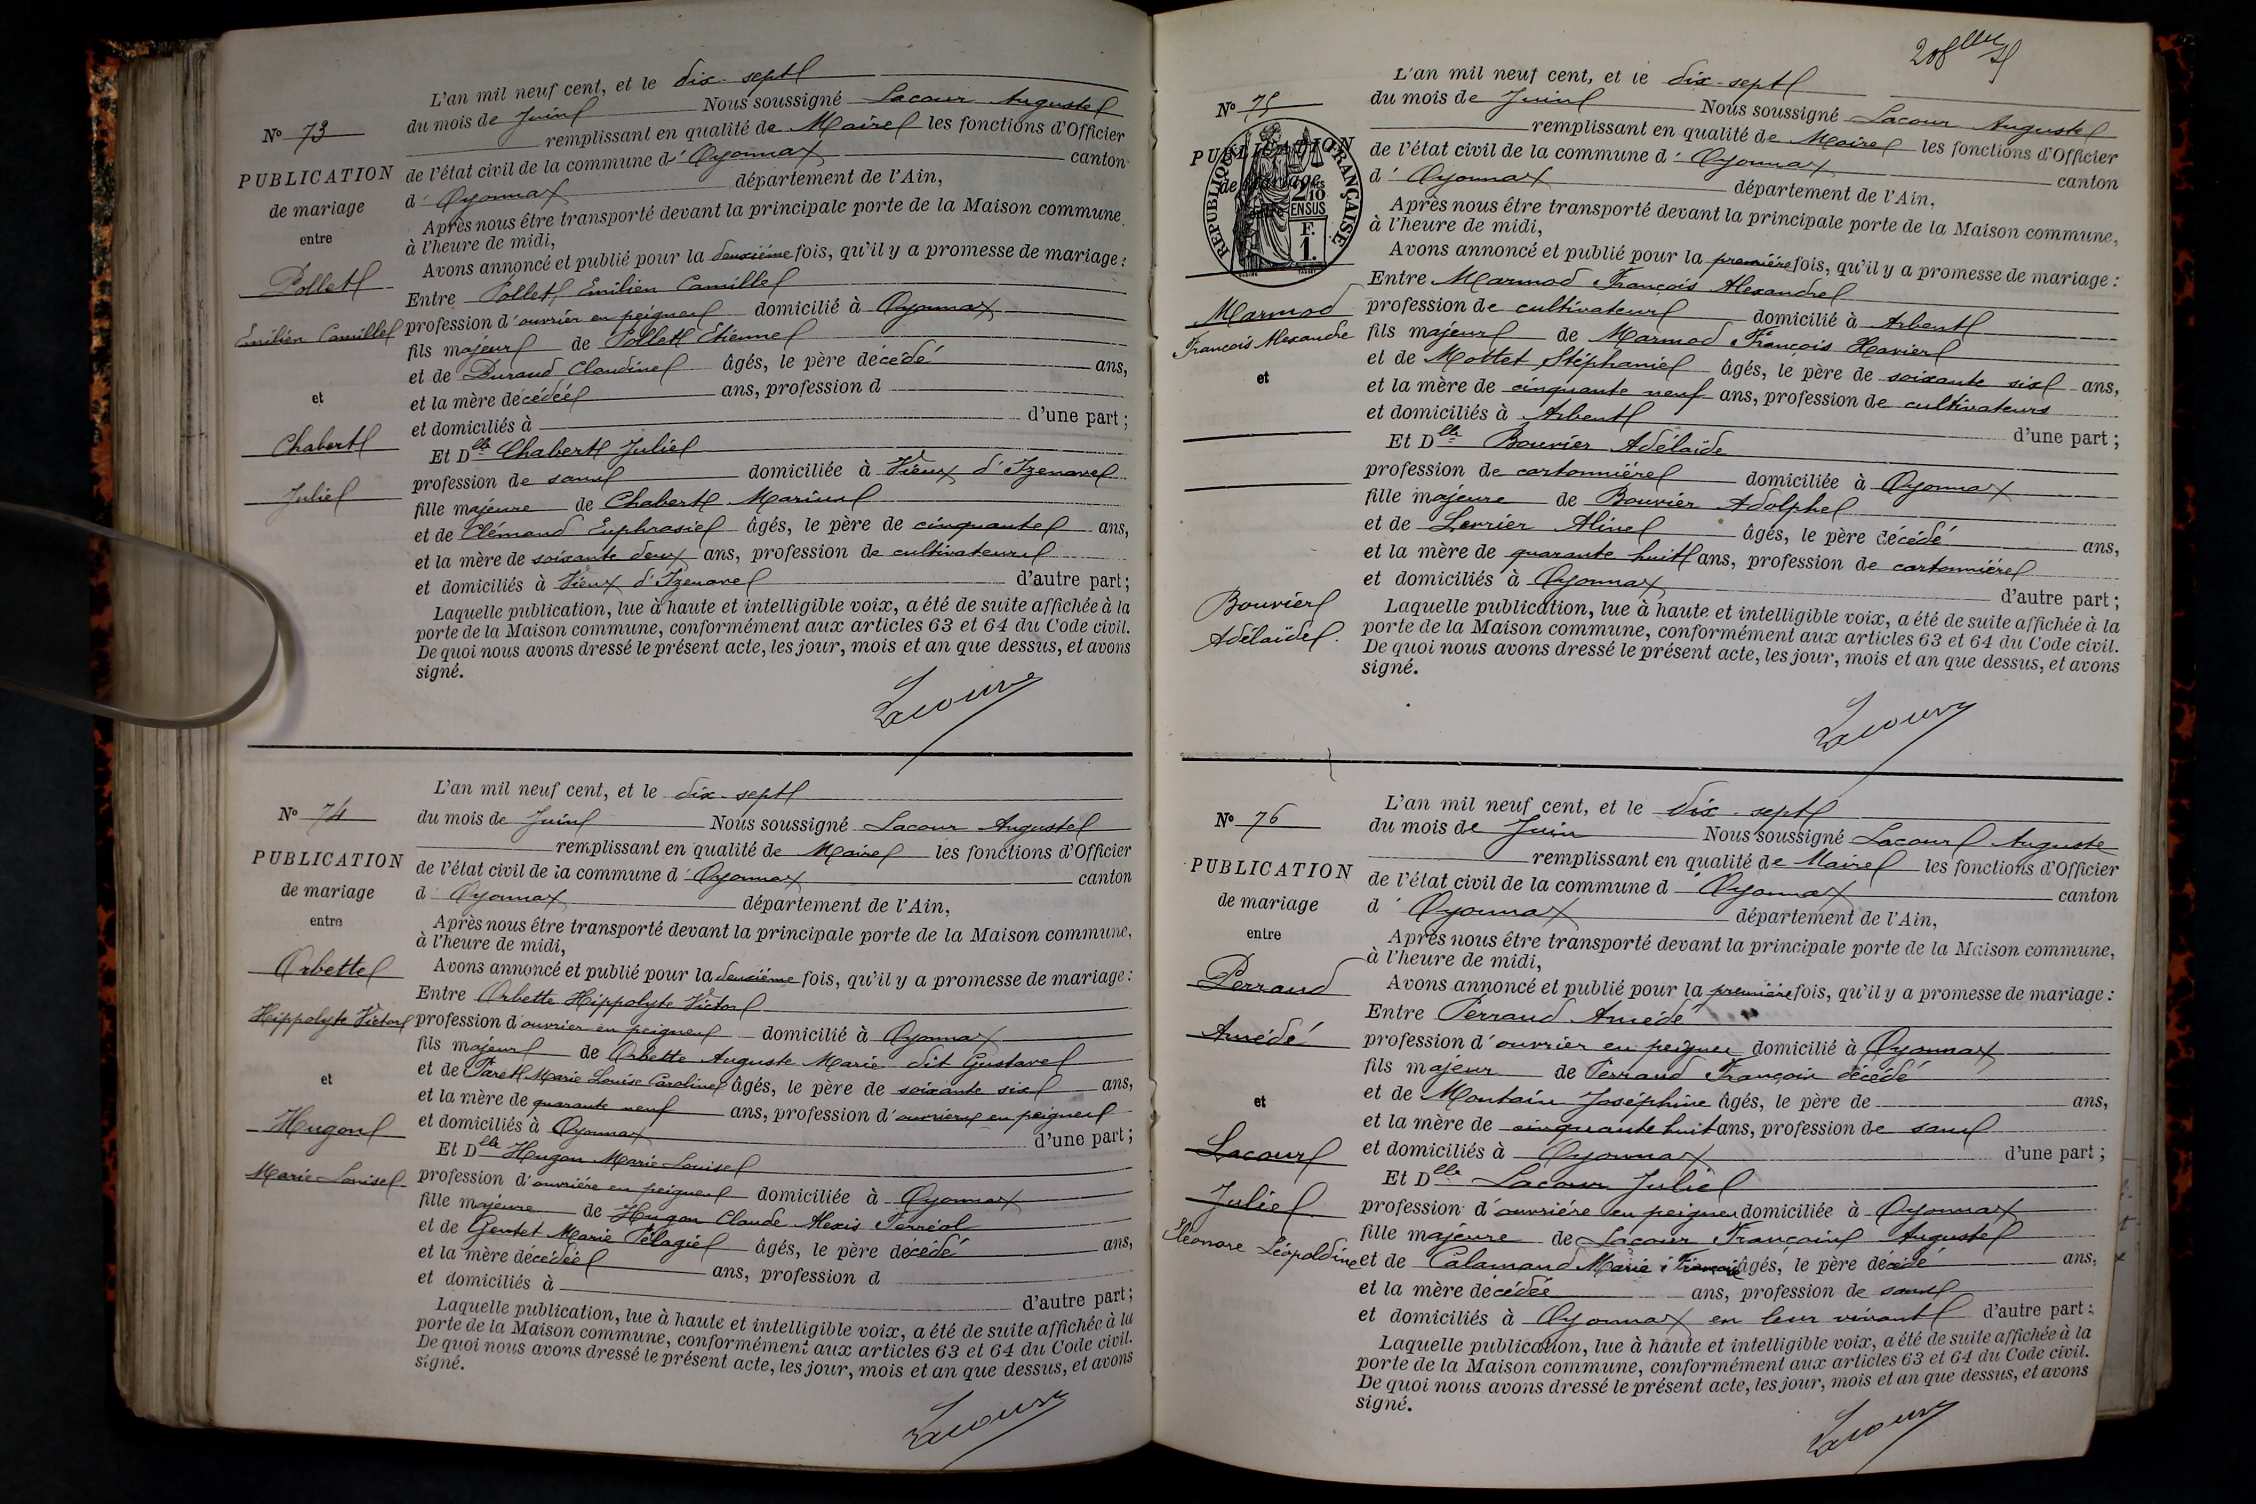 N° 73
PUBLICATION
de mariage
entre
Pollet
Emilien Camille
et
Chabert
Julie
L'an mil neuf cent, et le dix-sept
du mois de Juin Nous soussigné Lacour Auguste
remplissant en qualité de Maire les fonctions d'Officier
de l'état civil de la commune d'Oyonnax canton
d'Oyonnax département de l'Ain,
Après nous être transporté devant la principale porte de la Maison commune,
à l'heure de midi,
Avons annoncé et publié pour la deuxième fois, qu'il y a promesse de mariage :
Entre Pollet, Emilien Camille
profession d'ouvrier en peignes domicilié à Oyonnax
fils majeur de Pollet Etienne
et de Durand Claudine âgés, le père décédé ans,
et la mère décédée ans, profession d
et domiciliés à d'une part ;
Et Dlle Chabert Julie
profession de sans domiciliée à Vieux d'Izenave
fille majeure de Chabert Marius
et de Clémand Euphrasie âgés, le père de cinquante ans,
et la mère de soixante deux ans, profession de cultivateurs
et domiciliés à Vieux d'Izenave d'autre part ;
Laquelle publication, lue à haute et intelligible voix, a été de suite affichée à la
porte de la Maison commune, conformément aux articles 63 et 64 du Code civil.
De quoi nous avons dressé le présent acte, les jour, mois et an que dessus, et avons
signé.
Lacour
N° 74
PUBLICATION
de mariage
entre
Orbette
Hippolyte Victor
et
Hugon
Marie Louise
L'an mil neuf cent, et le dix-sept
du mois de Juin Nous soussigné Lacour Auguste
remplissant en qualité de Maire les fonctions d'Officier
de l'état civil de la commune d'Oyonnax canton
d'Oyonnax département de l'Ain,
Après nous être transporté devant la principale porte de la Maison commune,
à l'heure de midi,
Avons annoncé et publié pour la deuxième fois, qu'il y a promesse de mariage :
Entre Orbette Hippolyte Victor
profession d'ouvrier en peignes domicilié à Oyonnax
fils majeur de Orbette Auguste Marie dit Gustave
et de Paret Marie Louise Caroline âgés, le père de soixante six ans,
et la mère de quarante neuf ans, profession d'ouvriers en peignes
et domiciliés à Oyonnax d'une part ;
Et Dlle Hugon Marie Louise
profession d'ouvrière en peignes domiciliée à Oyonnax
fille majeure de Hugon Claude Alexis Perréal
et de Gentet Marie Pélagie âgés, le père décédé ans,
et la mère décédée ans, profession d
et domiciliés à d'autre part ;
Laquelle publication, lue à haute et intelligible voix, a été de suite affichée à la
porte de la Maison commune, conformément aux articles 63 et 64 du Code civil.
De quoi nous avons dressé le présent acte, les jour, mois et an que dessus, et avons
signé.
Lacour
N° 75
PUBLICATION
de mariage
RÉPUBLIQUE FRANÇAISE
2/10
EN SUS
F.
1.
Marmod
François Alexandre
et
Bouvier
Adélaïde
L'an mil neuf cent, et le dix-sept
du mois de Juin Nous soussigné Lacour Auguste
remplissant en qualité de Maire les fonctions d'Officier
de l'état civil de la commune d'Oyonnax canton
d'Oyonnax département de l'Ain,
Après nous être transporté devant la principale porte de la Maison commune,
à l'heure de midi,
Avons annoncé et publié pour la première fois, qu'il y a promesse de mariage :
Entre Marmod François Alexandre
profession de cultivateur domicilié à Arbent
fils majeur de Marmod François Xavier
et de Mottet Stéphanie âgés, le père de soixante six ans,
et la mère de cinquante neuf ans, profession de cultivateurs
et domiciliés à Arbent d'une part ;
Et Dlle Bouvier Adélaïde
profession de cartonnière domiciliée à Oyonnax
fille majeure de Bouvier Adolphe
et de Levrier Aline âgés, le père décédé ans,
et la mère de quarante huit ans, profession de cartonnière
et domiciliés à Oyonnax d'autre part ;
Laquelle publication, lue à haute et intelligible voix, a été de suite affichée à la
porte de la Maison commune, conformément aux articles 63 et 64 du Code civil.
De quoi nous avons dressé le présent acte, les jour, mois et an que dessus, et avons
signé.
Lacour
N° 76
PUBLICATION
de mariage
entre
Perraud
Amédé
et
Lacour
Julie
Eléonore Léopoldine
L'an mil neuf cent, et le dix-sept
du mois de Juin Nous soussigné Lacour Auguste
remplissant en qualité de Maire les fonctions d'Officier
de l'état civil de la commune d'Oyonnax canton
d'Oyonnax département de l'Ain,
Après nous être transporté devant la principale porte de la Maison commune,
à l'heure de midi,
Avons annoncé et publié pour la première fois, qu'il y a promesse de mariage :
Entre Perraud Amédé
profession d'ouvrier en peignes domicilié à Oyonnax
fils majeur de Perraud François décédé
et de Montain Joséphine âgés, le père de ans,
et la mère de cinquante huit ans, profession de sans
et domiciliés à Oyonnax d'une part ;
Et Dlle Lacour Julie
profession d'ouvrière en peignes domiciliée à Oyonnax
fille majeure de Lacour François Auguste
et de Calamand Marie âgés, le père décédé ans,
et la mère décédée ans, profession de sans
et domiciliés à Oyonnax en leur vivant d'autre part ;
Laquelle publication, lue à haute et intelligible voix, a été de suite affichée à la
porte de la Maison commune, conformément aux articles 63 et 64 du Code civil.
De quoi nous avons dressé le présent acte, les jour, mois et an que dessus, et avons
signé.
Lacour